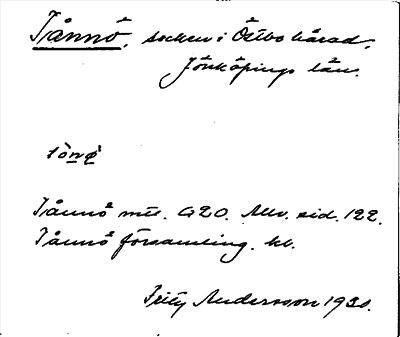 Tånnö, socken i Östbo härad,
Jönköpings län.
Tånnö mil. G20. Allv. sid. 122.
Tånnö församling. kb.
Fritz Andersson 1930.